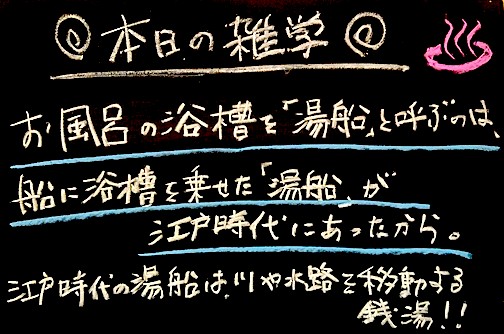 @本日の雑学@
お風呂の浴槽を「湯船」と呼ぶのは、
船に浴槽を乗せた「湯船」が
江戸時代にあったから。
江戸時代の湯船は、川や水路を移動する
銭湯!!